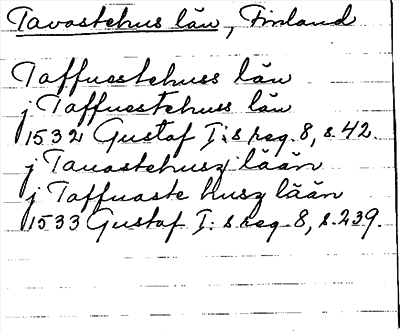 Tavastehus län, Finland
Taffuastehuss län
j Taffuestehuss län
1532 Gustaf I:s reg. 8, s. 42.
j Tauastehusz lään
j Taffuaste husz lään
1533 Gustaf I:s reg. 8, s. 239.